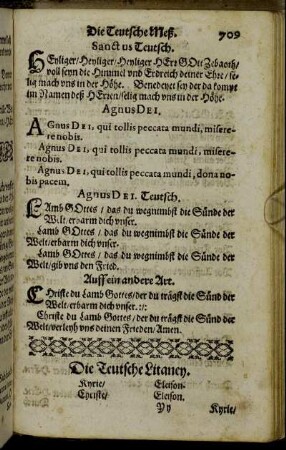 Die Teutsche Meß. 709
Sanctus Teutsch.
HEyliger/Heyliger/Heyliger HErr GOtt Zebaoth/
voll seyn die Himmel vnd Erdreich deiner Ehre/ se-
lig mach vns in der Höhe. Benedeyet sey der da kompt
im Namen deß HErren/selig mach vns in der Höhe.
Agnus DEI.
AGnus DEI, qui tollis peccata mundi, misere-
re nobis.
Agnus DEI, qui tollis peccata mundi, misere-
re nobis.
Agnus DEI, qui tollis peccata mundi, dona no-
bis pacem.
Agnus DEI. Teutsch.
LAmb GOttes / das du wegnimbst die Sünde der
Welt/erbarm dich vnser.
Lamb GOttes / das du wegnimbst die Sünde der
Welt/erbarm dich vnser.
Lamb GOttes / das du wegnimbst die Sünde der
Welt/gib vns den Fried.
Auff ein andere Art.
CHriste du Lamb Gottes/der du trägst die Sünd der
Welt/erbarm dich vnser.:/:
Christe du Lamb Gottes/ der du trägst die Sünd der
Welt/verleyh vns deinen Frieden/Amen.
Die Teutsche Litaney.
Kyrie/ Eleison.
Christe/ Eleison.
Yy Kyrie/